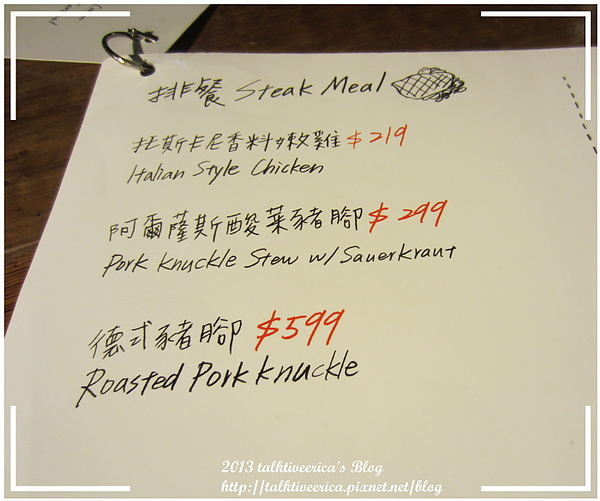 排餐 Steak Meal
托斯卡尼香料嫩雞 $219
Italian Style Chicken
阿爾薩斯酸菜豬腳 $299
Pork Knuckle Stew w/ Sauerkraut
德式豬腳 $599
Roasted Pork Knuckle
2013 talktiveerica's Blog
http://talktiveerica.pixnet.net/blog